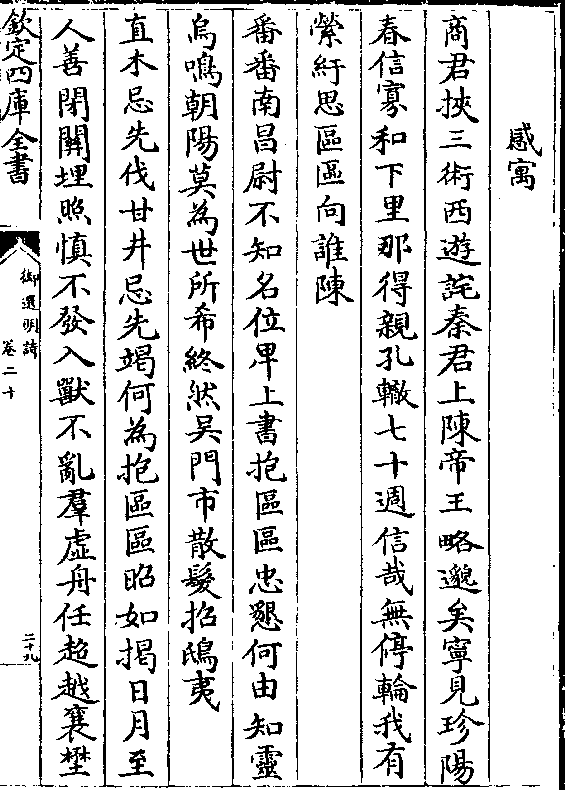 感寓
商君挾三術西遊詫秦君上陳帝王略邈矣寧見珍陽
春信寡和下里那得親孔轍七十週信哉無停輪我有
縈紆思區區向誰陳
番番南昌尉不知名位卑上書抱區區忠懇何由知靈
烏鳴朝陽莫為世所希終然吳門市散髮招鴟夷
直木忌先伐甘井忌先竭何為抱區區昭如揭日月至
人善閉關埋照慎不發入獸不亂羣虛舟任超越襄埜
欽定四庫全書
御選明詩
卷二十
二十九